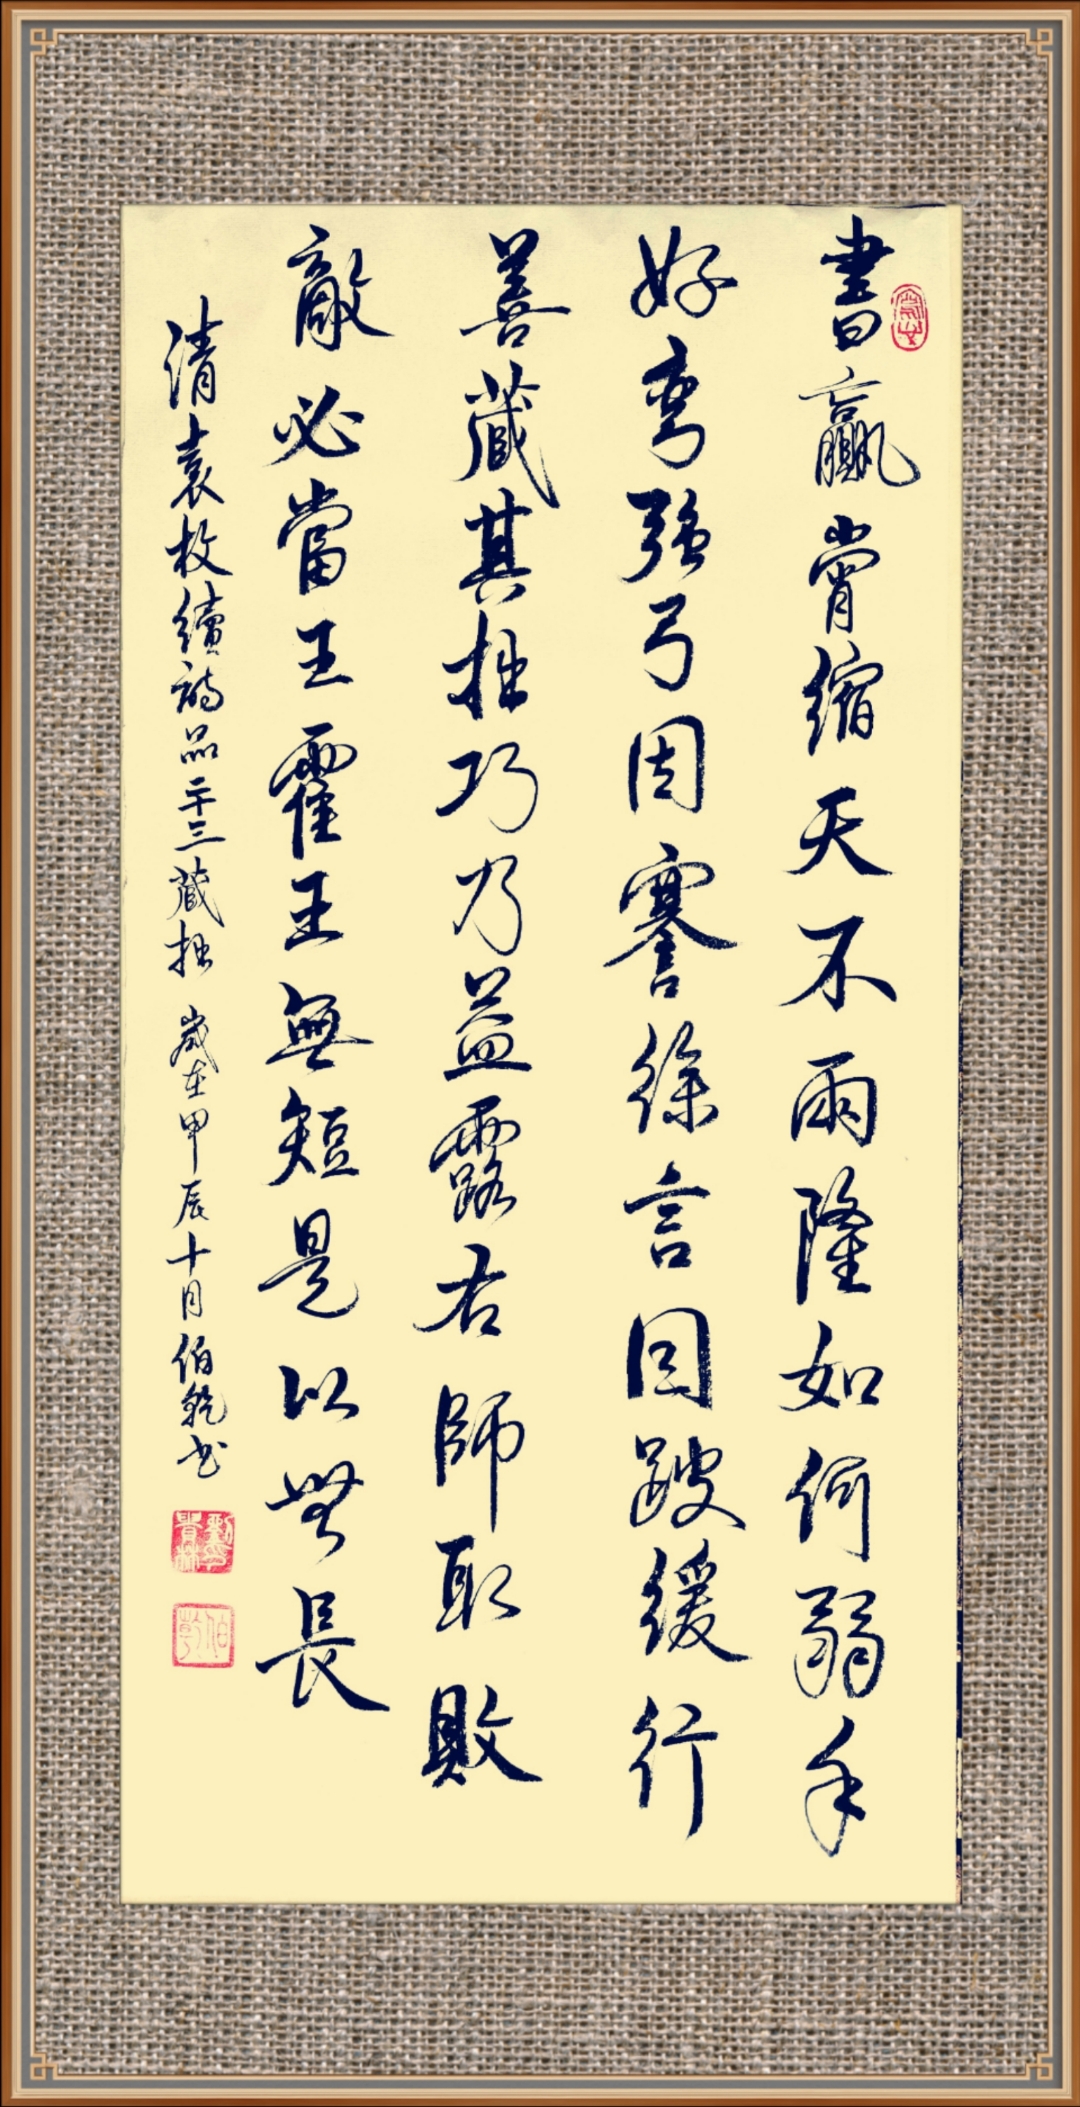 書贏宵縮天不兩隆如何弱手
好弯强弓因謇徐言因跛緩行
善藏其拙巧乃益露右師取敗
敵必當王霍王無短是以無長
清袁枚續詩品二十三藏拙 歲在甲辰十月伯乾书
伯乾